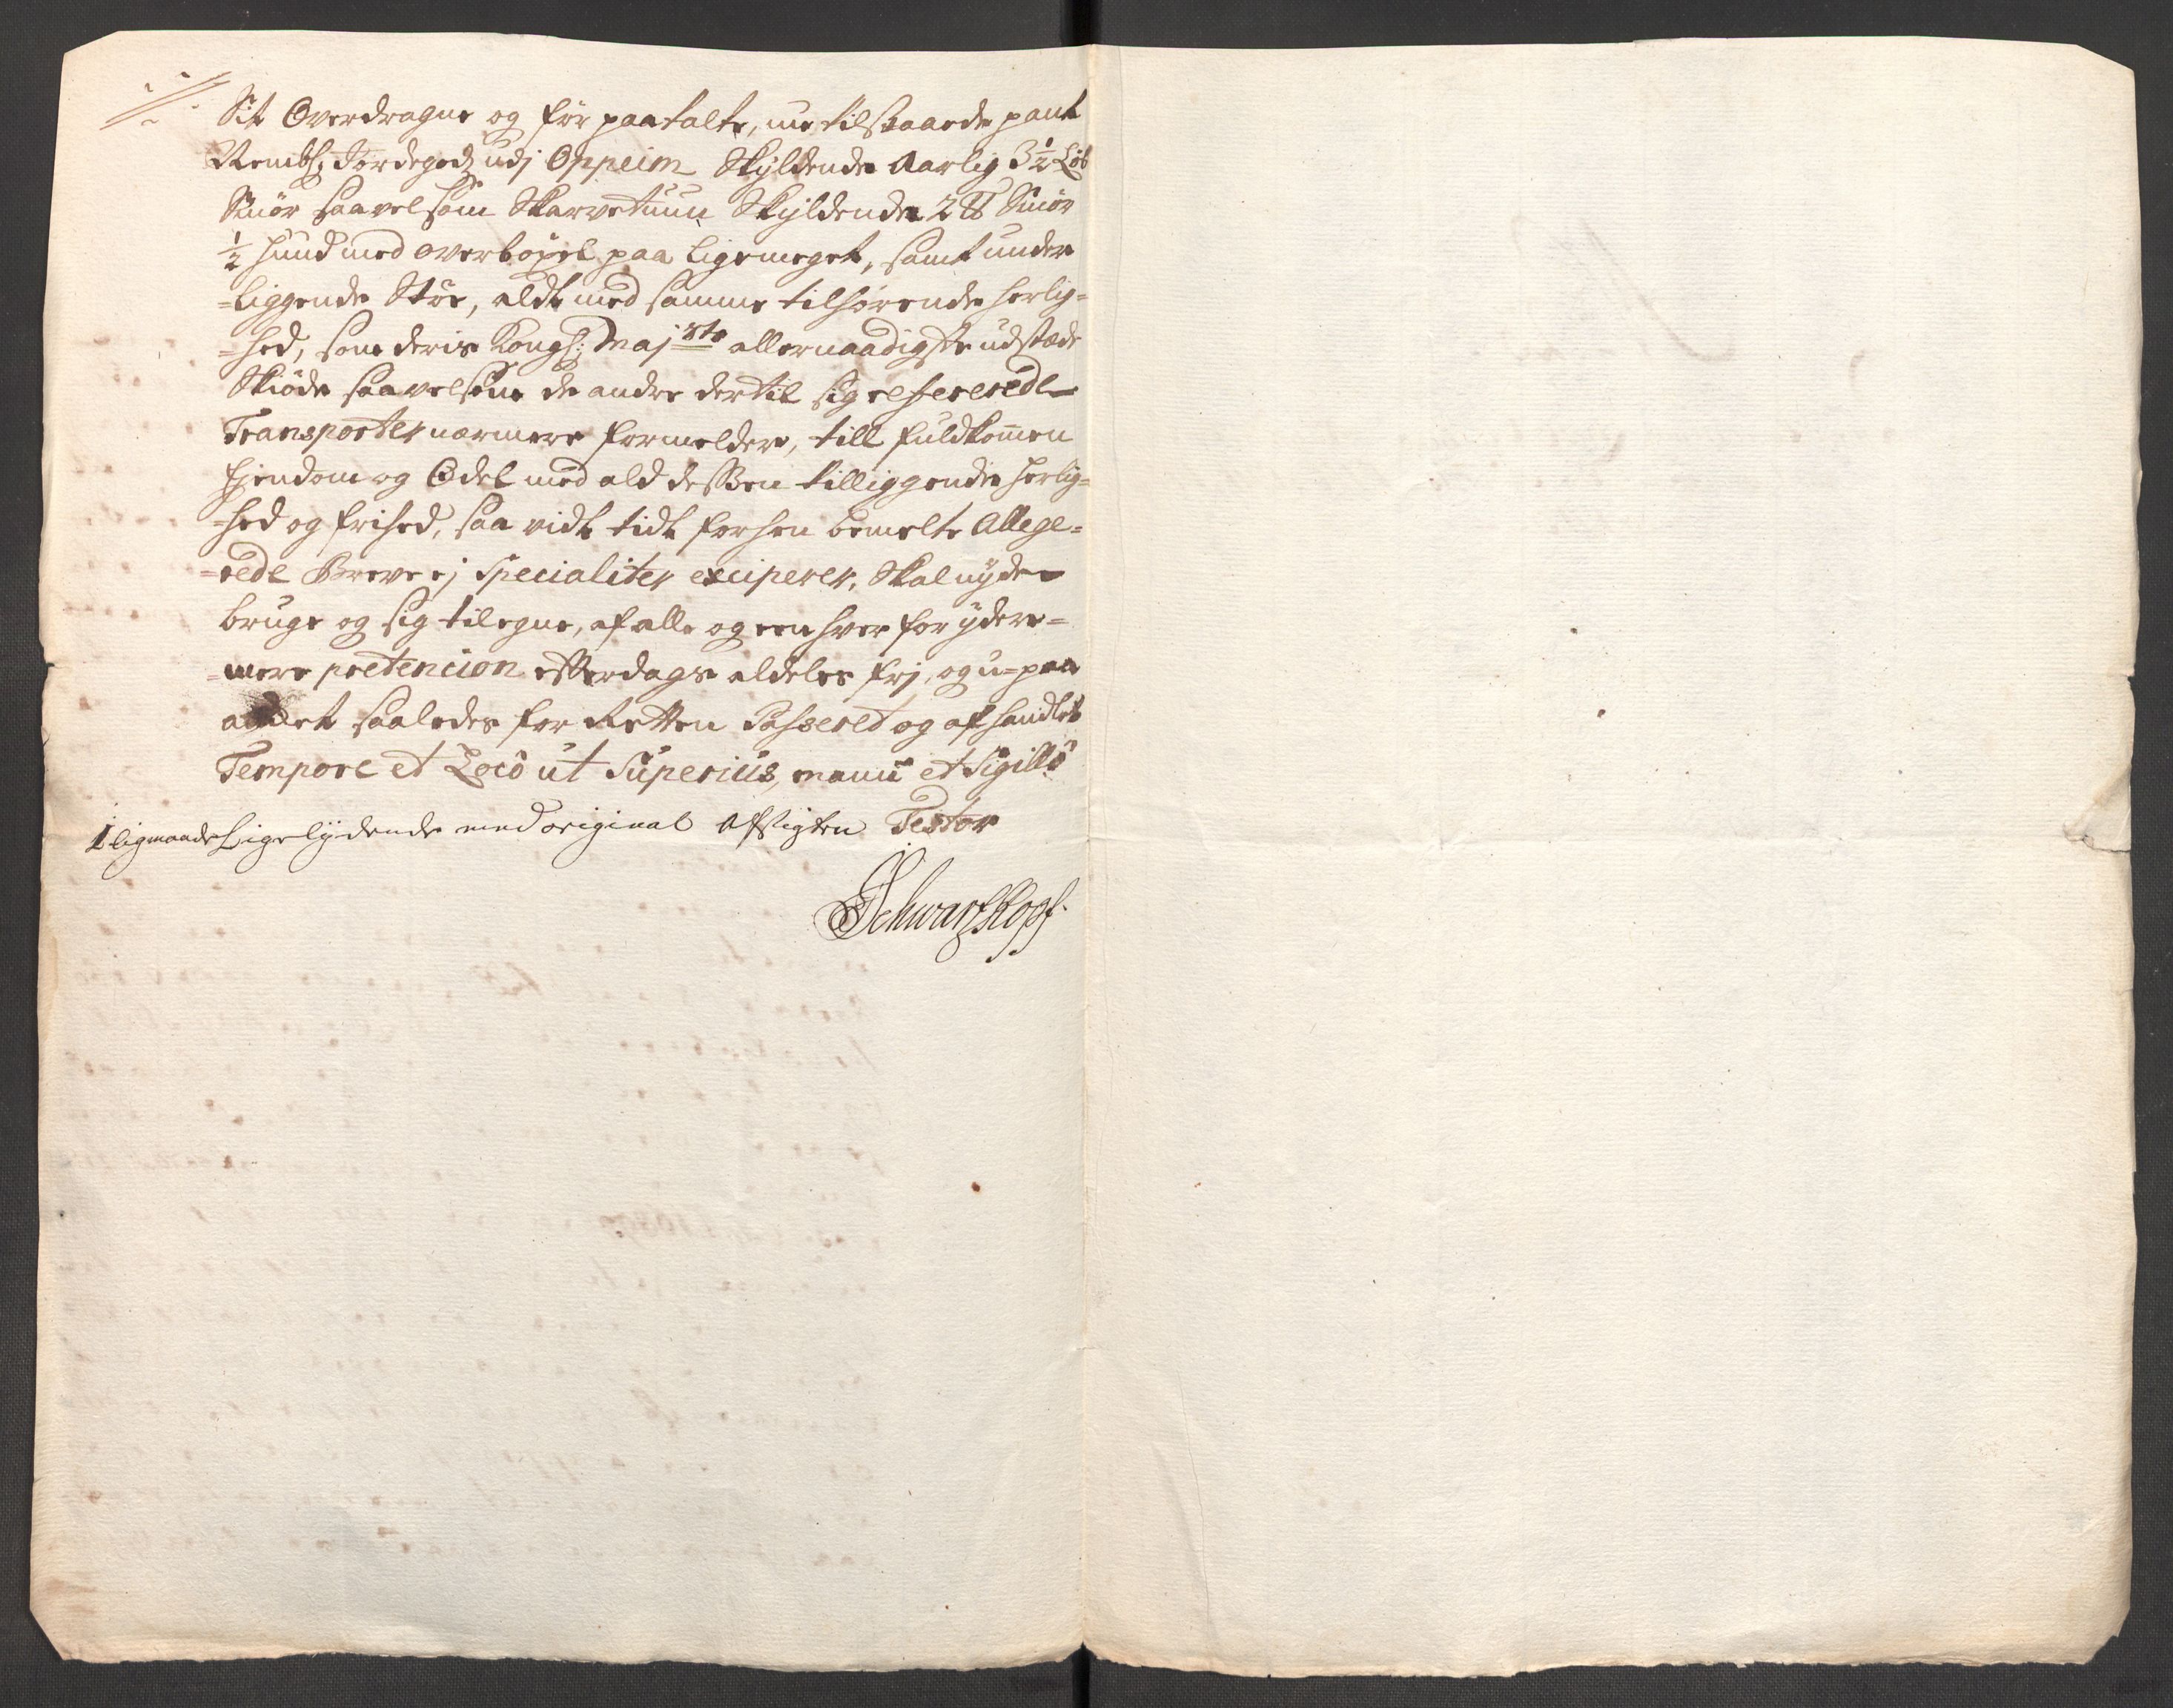 Sit Overdragne og før paatalte, nu tilstaaede pant
Jordegods udj Oppeim Skyldende Aarlig 3 1/2 Løb
Smør saavelsom Skarvetuun Skyldende 2 ℔ Smør
1/2 hund med overbøxel paa ligemeget, samt under
=liggende Støe, aldt med samme tilhørende herlig=
=hed, som deris Kongl: Maj:sts allernaadigste udstæde
Skiøde saavelsom de andre dertil sig refererede
Transporter nærmere formelder, till fuldkomen
Ejendom og Odel med ald dessen tilliggende herlig=
=hed og frihed, saa vidt tidt forhen bemelte Allege=
=rede Breve ej Specialiter exciperer, Skal nyde
bruge og sig tilegne, af alle og een hver for ydere=
=mere pretencion efterdags aldeles frj, og u=paa
saaledes for Retten Passeret og afhandlet
Tempore et Loco ut Superius, manu et Sigillo
I ligmaade Ligelydende med original Afsigten Testor
Schwartzkopf